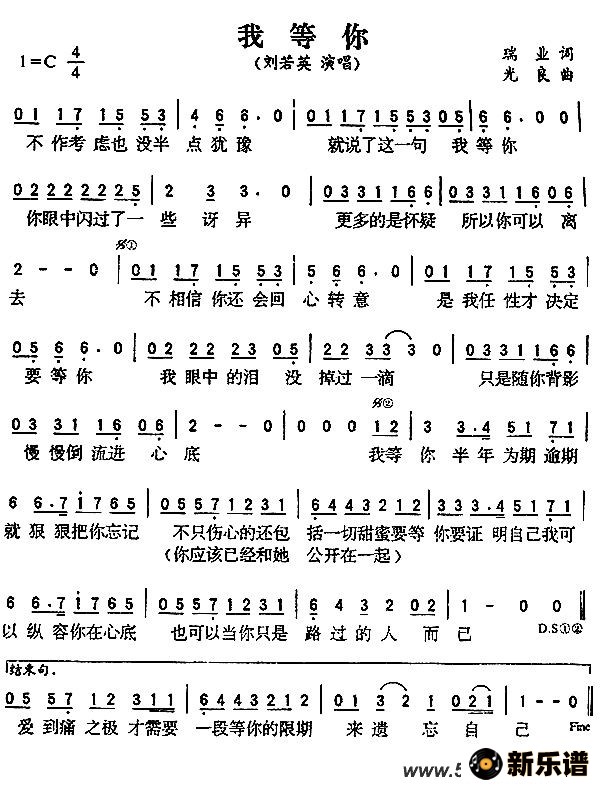 我等你
(刘若英 演唱)
1=C 4/4
瑞业词
光良曲
0 1 1 7 1 5 5 3 | 4 6 6·0 | 0 1 1 7 1 5 5 3 0 5 | 6 6·0 0 |
不作考虑也没半点犹豫 就说了这一句 我等你
0 2 2 2 2 2 2 5 | 2 3 3·0 | 0 3 3 1 1 6 6 | 0 3 3 1 1 6 0 6 |
你眼中闪过了一些讶异 更多的是怀疑 所以你可以离
𝄋①
2 - - 0 | 0 1 1 7 1 5 5 3 | 5 6 6·0 | 0 1 1 7 1 5 5 3 |
去 不相信你还会回心转意 是我任性才决定
0 5 6 6·0 | 0 2 2 2 2 3 0 5 | 2 2 3 3 3 0 | 0 3 3 1 1 6 6 |
要等你 我眼中的泪 没掉过一滴 只是随你背影
𝄋②
0 3 3 1 1 6 0 6 | 2 - - 0 | 0 0 0 1 2 | 3 3·4 5 1 7 1 |
慢慢倒流进心底 我等你半年为期逾期
6 6·7 1 7 6 5 | 0 5 5 7 1 2 3 1 | 6 4 4 3 2 1 2 | 3 3 3·4 5 1 7 1 |
就狠狠把你忘记 不只伤心的还包括一切甜蜜要等你要证明自己我可
(你应该已经和她 公开在一起)
6 6·7 1 7 6 5 | 0 5 5 7 1 2 3 1 | 6 4 3 2 0 2 | 1 - 0 0 ‖
以纵容你在心底 也可以当你只是路过的人而己 D.S①②
结束句.
0 5 5 7 1 2 3 1 | 6 4 4 3 2 1 2 | 0 1 3 2 1 | 1 0 2 1 | 1 - - 0 ‖
爱到痛之极才需要一段等你的限期 来遗忘自己 Fine
www.5
新乐谱